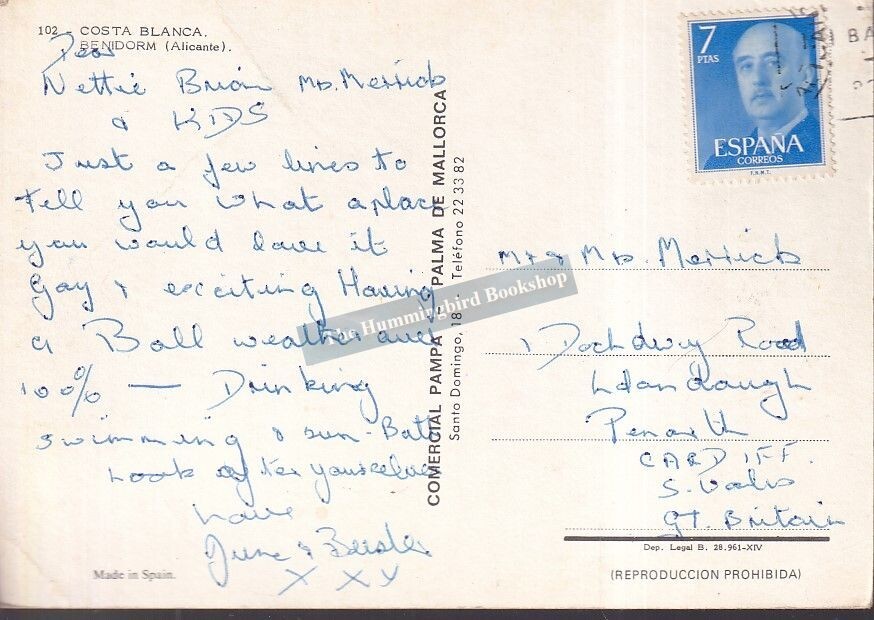 102 - COSTA BLANCA.
BENIDORM (Alicante).
Dear
Nettie Brian Mrs. Merrick
& KIDS
Just a few lines to
tell you what a place
you would love it
Gay & exciting Having
a Ball weather over
100% — Drinking
swimming & sun-Bath
Look after yourselves
Love
June &
X X X
Made in Spain.
COMERCIAL PAMPA - PALMA DE MALLORCA
Santo Domingo, 18 - Teléfono 22 33 82
The Hummingbird Bookshop
7
PTAS
ESPAÑA
CORREOS
F.N.M.T.
BA
Mr & Mrs. Merrick
1 Dochdwy Road
Llandough
Penarth
CARDIFF.
S. Wales
GT. Britain
Dep. Legal B. 28.961-XIV
(REPRODUCCION PROHIBIDA)